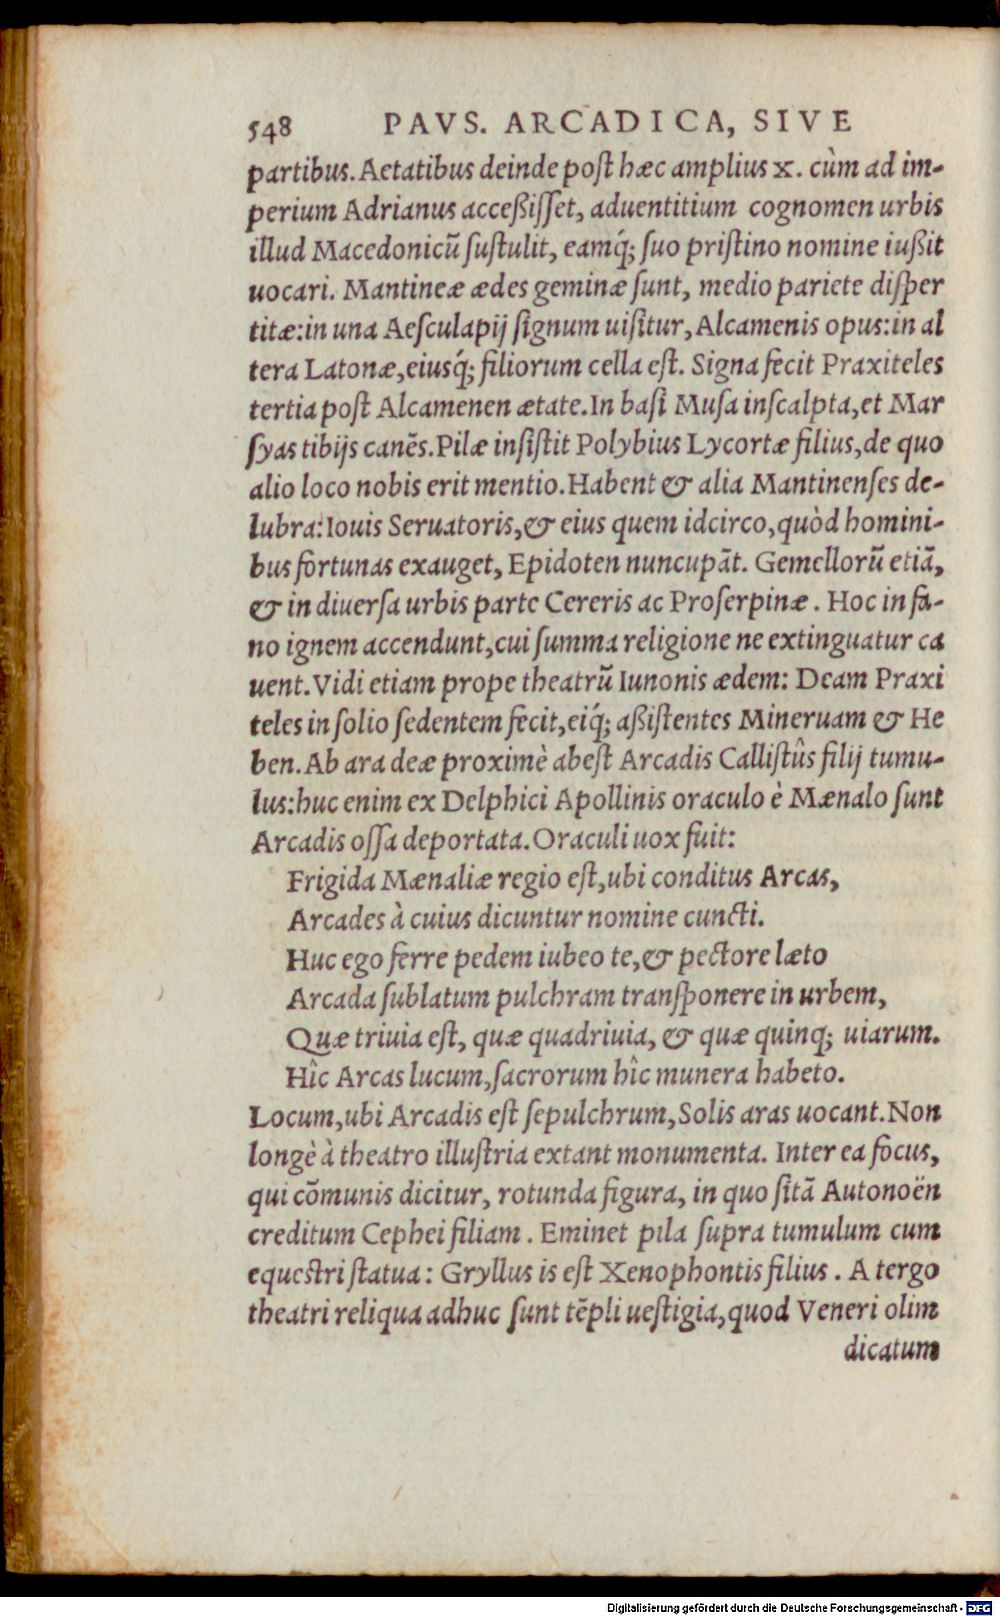 548 PAVS. ARCADICA, SIVE
partibus. Aetatibus deinde post hæc amplius x. cùm ad im-
perium Adrianus acceßisset, aduentitium cognomen urbis
illud Macedonicũ sustulit, eamq́; suo pristino nomine iußit
uocari. Mantineæ ædes geminæ sunt, medio pariete disper
titæ: in una Aesculapij signum uisitur, Alcamenis opus: in al
tera Latonæ, eiusq́; filiorum cella est. Signa fecit Praxiteles
tertia post Alcamenen ætate. In basi Musa inscalpta, et Mar
syas tibijs canẽs. Pilæ insistit Polybius Lycortæ filius, de quo
alio loco nobis erit mentio. Habent & alia Mantinenses de-
lubra: Iouis Seruatoris, & eius quem idcirco, quòd homini-
bus fortunas exauget, Epidoten nuncupãt. Gemellorũ etiã,
& in diuersa urbis parte Cereris ac Proserpinæ. Hoc in fa-
no ignem accendunt, cui summa religione ne extinguatur ca
uent. Vidi etiam prope theatrũ Iunonis ædem: Deam Praxi
teles in solio sedentem fecit, eiq́; aßistentes Mineruam & He
ben. Ab ara deæ proximè abest Arcadis Callistûs filij tumu-
lus: huc enim ex Delphici Apollinis oraculo è Mænalo sunt
Arcadis ossa deportata. Oraculi uox fuit:
Frigida Mænaliæ regio est, ubi conditus Arcas,
Arcades à cuius dicuntur nomine cuncti.
Huc ego ferre pedem iubeo te, & pectore læto
Arcada sublatum pulchram transponere in urbem,
Quæ triuia est, quæ quadriuia, & quæ quinq; uiarum.
Hîc Arcas lucum, sacrorum hîc munera habeto.
Locum, ubi Arcadis est sepulchrum, Solis aras uocant. Non
longè à theatro illustria extant monumenta. Inter ea focus,
qui cõmunis dicitur, rotunda figura, in quo sitã Autonoën
creditum Cephei filiam. Eminet pila supra tumulum cum
equestri statua: Gryllus is est Xenophontis filius. A tergo
theatri reliqua adhuc sunt tẽpli uestigia, quod Veneri olim
dicatum
Digitalisierung gefördert durch die Deutsche Forschungsgemeinschaft - DFG